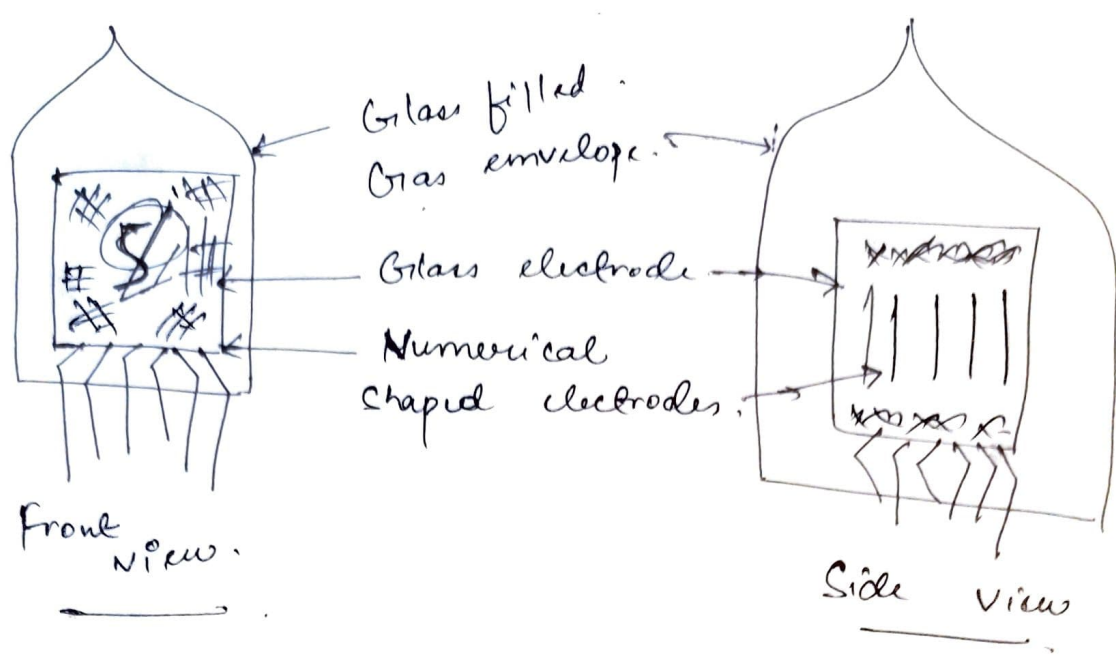 Glass filled.
Gas emvelope.
5
Glass electrode
Numerical
Shaped electrodes.
Front
View.
Side View